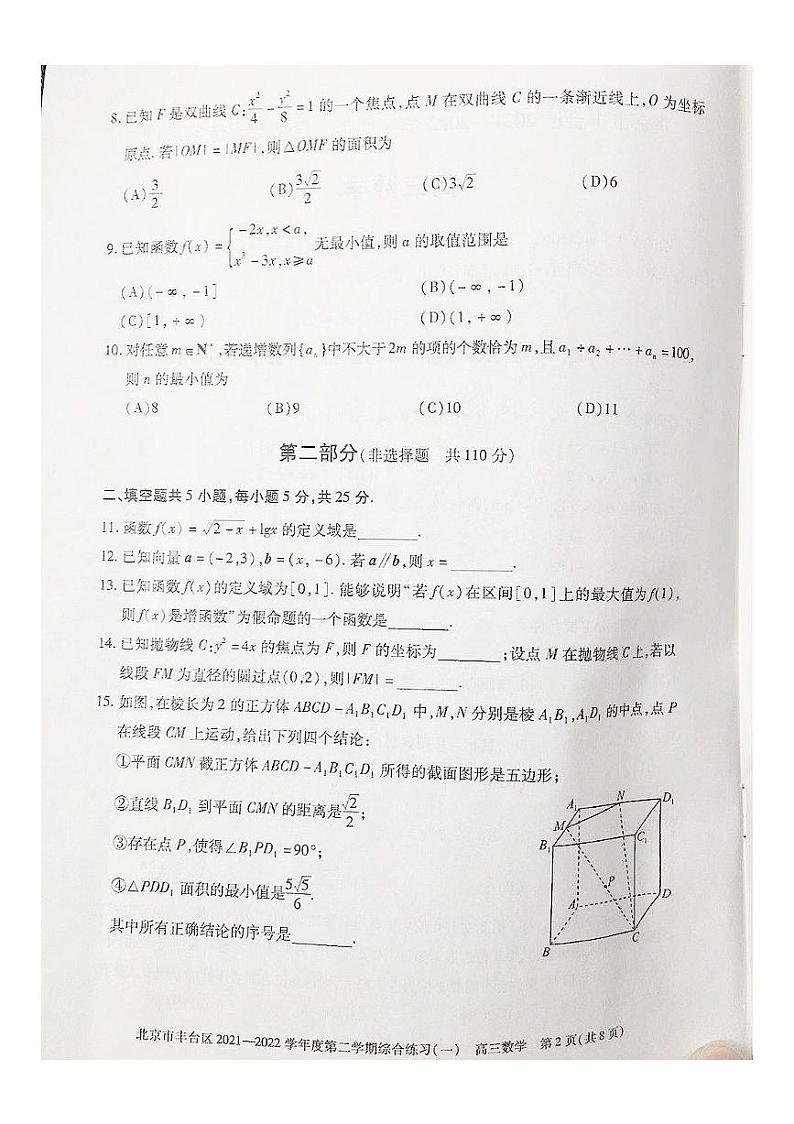 8. 已知 F 是双曲线 C: x²/4 - y²/8 = 1 的一个焦点,点 M 在双曲线 C 的一条渐近线上,O 为坐标
原点. 若|OM| = |MF|,则△OMF 的面积为
(A) 3/2 (B) 3√2/2 (C) 3√2 (D) 6
9. 已知函数 f(x) = { -2x, x < a, x³ - 3x, x ≥ a 无最小值,则 a 的取值范围是
(A) (-∞, -1] (B) (-∞, -1)
(C) [1, +∞) (D) (1, +∞)
10. 对任意 m∈N*,若递增数列{aₙ}中不大于 2m 的项的个数恰为 m,且 a₁ + a₂ + ⋯ + aₙ = 100,
则 n 的最小值为
(A) 8 (B) 9 (C) 10 (D) 11
第二部分(非选择题 共 110 分)
二、填空题共 5 小题,每小题 5 分,共 25 分.
11. 函数 f(x) = √(2-x) + lgx 的定义域是______.
12. 已知向量 a = (-2,3), b = (x, -6). 若 a∥b,则 x = ______.
13. 已知函数 f(x) 的定义域为[0,1]. 能够说明“若 f(x) 在区间[0,1]上的最大值为 f(1),
则 f(x) 是增函数”为假命题的一个函数是______.
14. 已知抛物线 C: y² = 4x 的焦点为 F,则 F 的坐标为______;设点 M 在抛物线 C 上,若以
线段 FM 为直径的圆过点(0,2),则|FM| = ______.
15. 如图,在棱长为 2 的正方体 ABCD - A₁B₁C₁D₁ 中,M,N 分别是棱 A₁B₁,A₁D₁ 的中点,点 P
在线段 CM 上运动,给出下列四个结论:
①平面 CMN 截正方体 ABCD - A₁B₁C₁D₁ 所得的截面图形是五边形;
②直线 B₁D₁ 到平面 CMN 的距离是 √2/2;
③存在点 P,使得∠B₁PD₁ = 90°;
④△PDD₁ 面积的最小值是 5√5/6.
其中所有正确结论的序号是______.
A₁ N D₁
M
B₁ C₁
P
A D
B C
北京市丰台区 2021—2022 学年度第二学期综合练习(一) 高三数学 第 2 页(共 8 页)